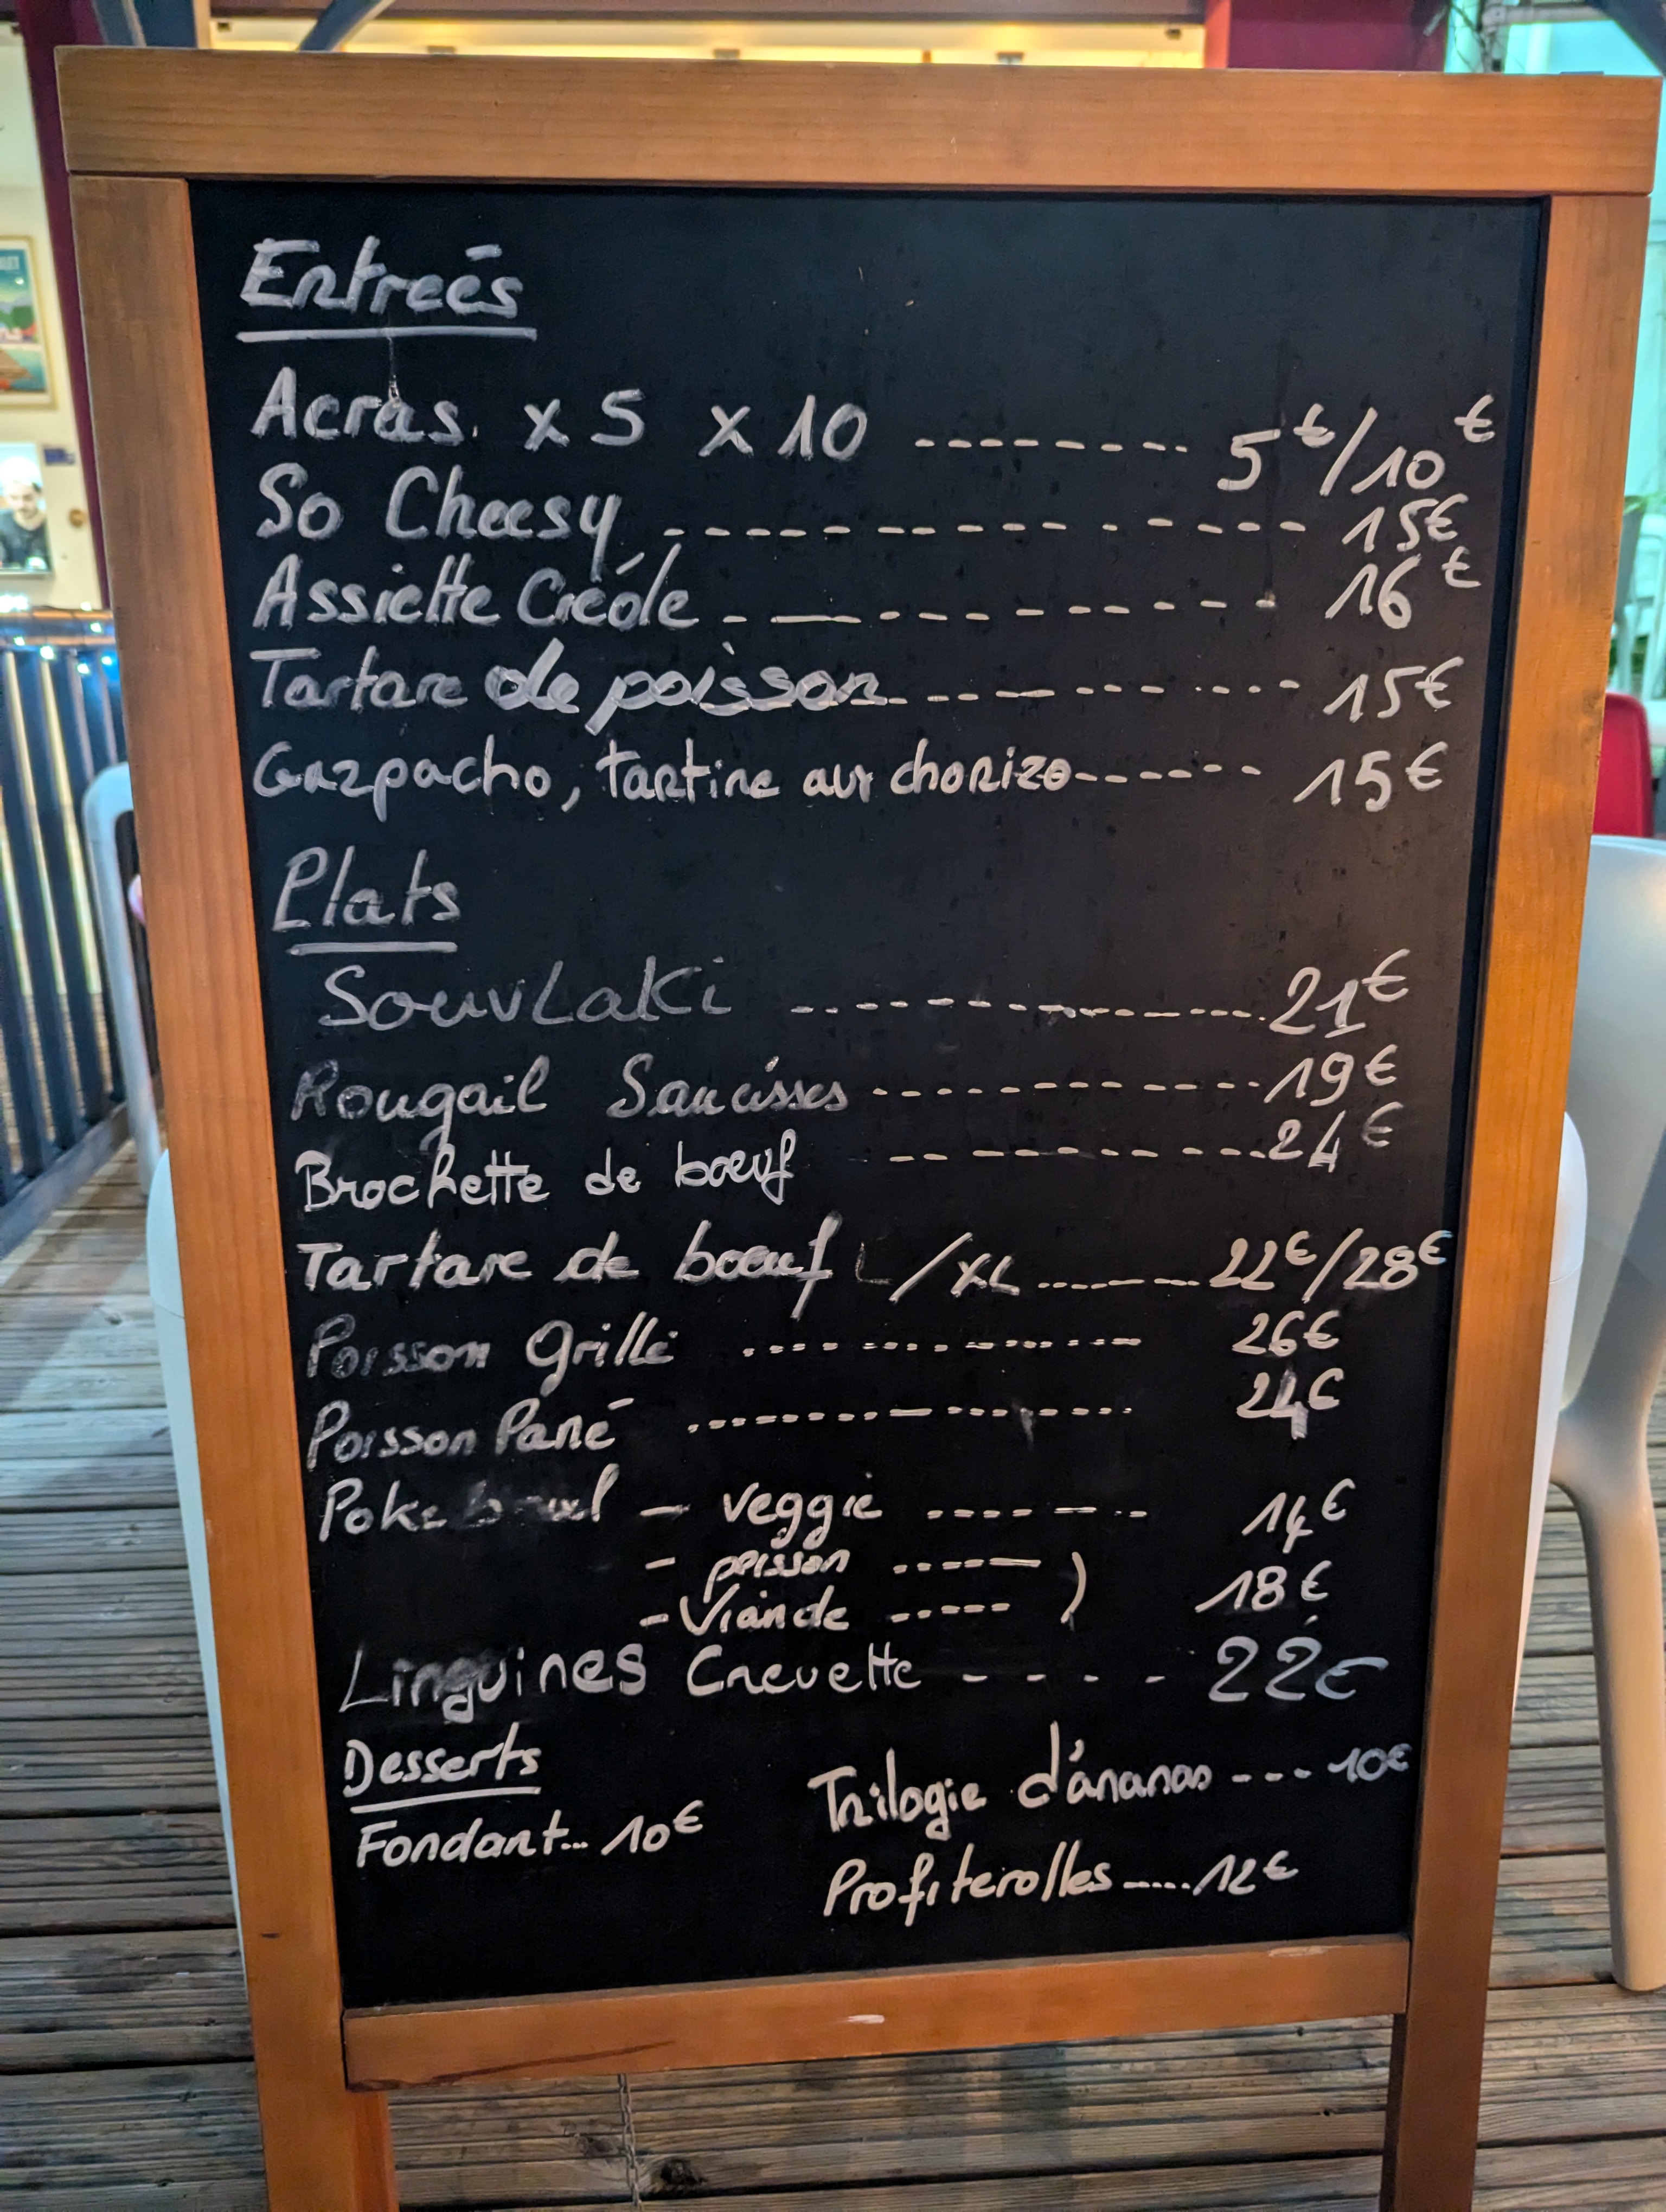 Entreés
Acras. x 5 x 10 -------- 5€/10€
So Cheesy -------------- 15€
Assiette Créole ----------- 16€
Tartare de poisson ----------- 15€
Gazpacho, tartine aux chorizo ------ 15€
Plats
Souvlaki -------------- 21€
Rougail Saucisses ------------- 19€
Brochette de bœuf ---------- 24€
Tartare de bœuf L/XL -------- 22€/28€
Poisson Grillé ------------ 26€
Poisson Pané --------------- 24€
Poke bowl - veggie ------- 14€
- poisson ------ )
- Viande ----- ) 18€
Linguines Crevette - - - - 22€
Desserts
Fondant... 10€
Trilogie d'ananas --- 10€
Profiterolles ..... 12€